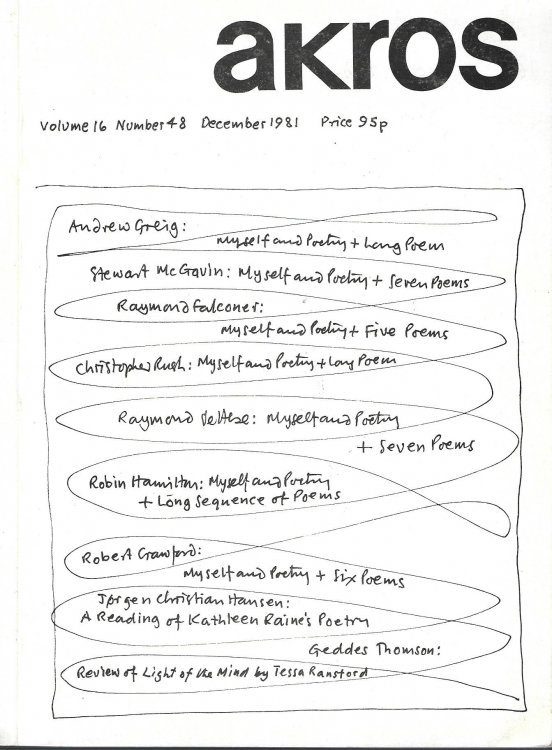 akros
Volume 16 Number 48 December 1981 Price 95p
Andrew Greig:
Myself and Poetry + Long Poem
Stewart McGavin: Myself and Poetry + Seven Poems
Raymond Falconer:
Myself and Poetry + Five Poems
Christopher Rush: Myself and Poetry + Long Poem
Raymond Myself and Poetry
+ Seven Poems
Robin Hamilton: Myself and Poetry
+ Long Sequence of Poems
Robert Crawford:
Myself and Poetry + Six Poems
Jørgen Christian Hansen:
A Reading of Kathleen Raine's Poetry
Geddes Thomson:
Review of Light of the Mind by Tessa Ransford